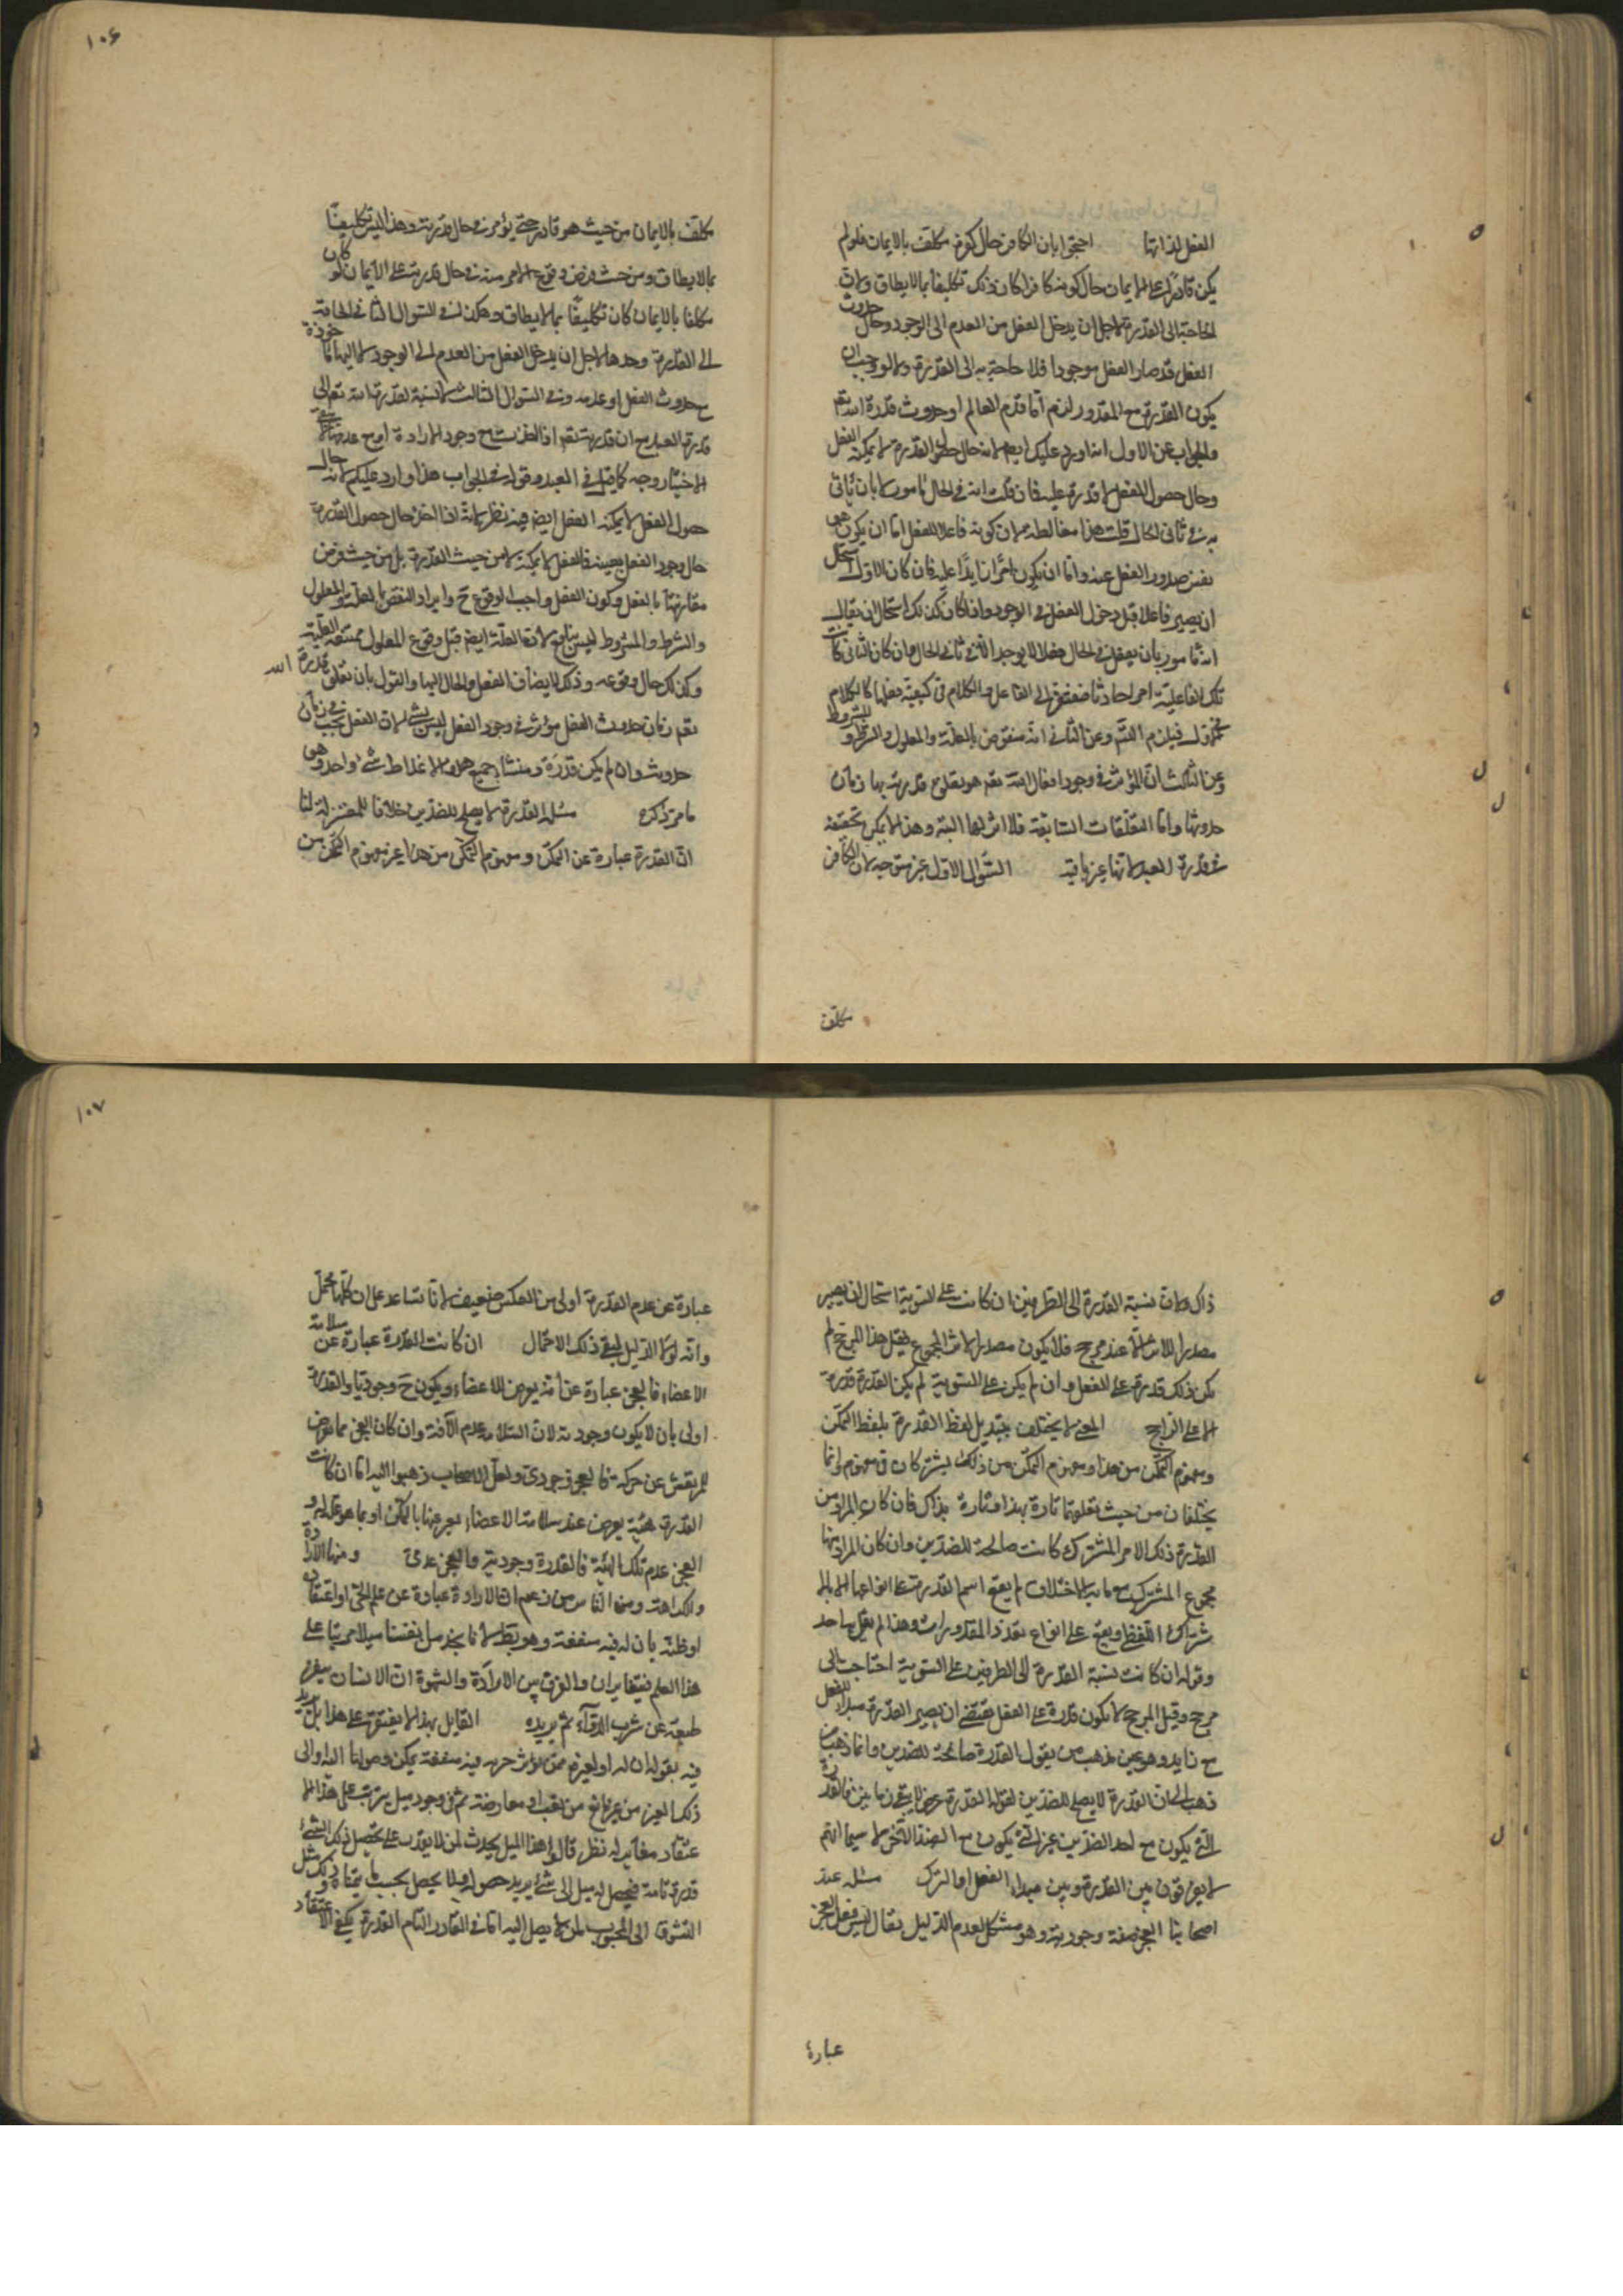 الفعل لذاتها احتجوا بان الكافر حال كفره مكلف بالايمان فلو لم
يكن قادرا على الايمان حال كونه كافرا كان ذلك تكليفا بما لا يطاق ولان
الحاجة الى القدرة لاجل ان يدخل الفعل من العدم الى الوجود وحال حدوث
الفعل قد صار الفعل موجودا فلا حاجة به الى القدرة ولانه لو وجب ان
يكون القدرة مع المقدور لزم اما قدم العالم او حدوث قدرة الله تعم
والجواب عن الاول انه وارد عليكم ايضا لانه حال حصول القدرة لا يمكنه الفعل
وحال حصول الفعل لا قدرة عليه فان قلت انه في الحال مامور لا بان ياتي
به في ثاني الحال قلت هذا مغالطة لان كونه فاعلا للفعل اما ان يكون هو
نفس صدور الفعل عنه واما ان يكون امرا زايدا عليه فان كان الاول استحال
ان يصير فاعلا قبل دخول الفعل في الوجود واذا كان كذلك استحال ان يقال
انه مامور بان يفعل في الحال فعلا لا يوجد الا في ثاني الحال وان كان الثاني كانت
تلك الفاعلية امرا حادثا فيفتقر الى الفاعل والكلام في كيفية فعلها كالكلام
في الاول فيلزم التسم وعن الثاني انه منقوض بالعلة والمعلول والشرط والمشروط
وعن الثالث ان المؤثر في وجود افعال الله تعم هو تعلق قدرته بها زمان
حدوثها واما التعلقات السابقة فلا اثر لها البتة وهذا لا يمكن تحققه
في قدرة العبد لانها غير باقية السؤال الاول غير متوجه لان الكافر
مكلف
١٠۶
مكلف بالايمان من حيث هو قادر حتى يؤمن في حال قدرته وهذا ليس تكليفا
بما لا يطاق ومن حيث فرض وقوع الامر منه في حال قدرته على الايمان لو كان
مكلفا بالايمان كان تكليفا بما لا يطاق وهكذا في السؤال الثاني الحاجة
الى القدرة وحدها لاجل ان يدخل الفعل من العدم الى الوجود لا اليها ماخوذة
مع حدوث الفعل او عدمه وفي السؤال الثالث لا نسبة لقدرة الله تعم الى
قدرة العبد مع ان قدرته تعم اذا اخذت مع وجود الارادة او مع عدمها لا يبقى
الاختيار وجه كما قيل في العبد وقوله في الجواب هذا وارد عليكم لانه حال
حصول الفعل لا يمكنه الفعل ايضا فيه نظر لانه اذا اخذ حال حصول القدرة
حال وجود الفعل بعينه فالفعل لا يمكنه لا من حيث القدرة بل من حيث فرض
مقارنتها بالفعل وكون الفعل واجب الوقوع ح وايراد النقض بالعلة والمعلول
والشرط والمشروط ليس بناقض لان العلة ايضا قبل وقوع المعلول ممتنعة العلية
وكذلك حال وقوعه وذلك لا يضاف الفعل والحال اليها والقول بان تعلق قدرة الله
تعم زمان حدوث الفعل مؤثر في وجود الفعل ليس بشئ لان الفعل يجب في زمان
حدوثه وان لم يكن قدرة ومنشا جميع هذه الاغلاط شئ واحد وهو
ما مر ذكره مسئله القدرة لا يصلح للضدين خلافا للمعتزلة لنا
ان القدرة عبارة عن التمكن ومفهوم التمكن من هذا غير مفهوم التمكن من
ذاك ولان نسبة القدرة الى الطرفين ان كانت على السوية استحال ان يصير
مصدرا للاثر الا عند مرجح فلا يكون مصدر الاثر الا المجموع فقبل هذا المرجح لم
يكن ذلك قدرة على الفعل وان لم يكن على السوية لم يكن القدرة قدرة
الا على الراجح المعنى لا يختلف بتبديل لفظ القدرة بلفظ التمكن
ومفهوم التمكن من هذا ومفهوم التمكن من ذلك يشتركان في مفهوم وانما
يختلفان من حيث تعلقهما تارة بهذا وتارة بذاك فان كان المراد من
القدرة ذلك الامر المشترك كانت صالحة للضدين وان كان المراد منها
مجموع المشترك مع ما به الاختلاف لم يقع اسم القدرة على انواعها الا بالا
شتراك اللفظي ويقع على انواع بعدد المقدورات وهذا لم يقل به احد
وقوله ان كانت نسبة القدرة الى الطرفين على السوية احتاجت الى
مرجح وقبل المرجح لا يكون قدرة على الفعل يقتضي ان يصير القدرة مبدا للفعل
مع زايد وهو عين مذهب من يقول القدرة صالحة للضدين وانما ذهب من
ذهب الى ان القدرة لا يصلح للضدين لقوله القدرة عرض لا يبقى زمانين فالقدرة
التي يكون مع احد الضدين غير التي يكون مع الضد الاخر لا سيما انهم
لا يفرقون بين القدرة وبين مبدا الفعل او الترك مسئله عند
اصحابنا العجز صفة وجودية وهو مشكل لعدم الدليل يقال ليس جعل العجز
عبارة
١٠٧
عبارة عن عدم القدرة اولى من العكس ضعيف لانا نساعد على ان كلهما محتمل
وانه لولا الدليل لبقي ذلك الاحتمال ان كانت القدرة عبارة عن سلامة
الاعضاء فالعجز عبارة عن آفة يعرض للاعضاء ويكون ح وجوديا والقدرة
اولى بان لا يكون وجودية لان السلامة عدم الآفة وان كان العجز ما يعرض
للمرتعش عن حركته فالعجز وجودي ولعل الاصحاب ذهبوا اليه اما ان كانت
القدرة هيئة يعرض عند سلامة الاعضاء يعبر عنها بالتمكن او بما هو علة له و
العجز عدم تلك الهيئة فالقدرة وجودية والعجز عدمي ومنها الارادة
والكراهة ومن الناس من زعم ان الارادة عبارة عن علم الحي او اعتقاده
او ظنه بان له فيه منفعة وهو بط لانا نجد من انفسنا ميلا مرتبا على
هذا العلم فيتغايران والفرق بين الارادة والشهوة ان الانسان ينفر
طبعه عن شرب الدواء ثم يريده القايل بهذا لا يقتصر على هذا بل يزيد
فيه بقوله ان له او لغيره ممن يؤثر خيره فيه منفعة يمكن وصولها اليه او الى
ذلك الغير من غير مانع من تعب او معارضة ثم في وجود ميل يترتب على هذا الا
عتقاد مغاير له نظر قالوا هذا الميل يحدث لمن لا يقدر على تحصيل ذلك الشئ
قدرة تامة فيحصل له ميل الى شئ يريد حصوله ولا يحصل بحسب ما يتمناه وذلك مثل
الشوق الى المحبوب لمن لا يصل اليه اما في القادر التام القدرة يكفي الاعتقاد